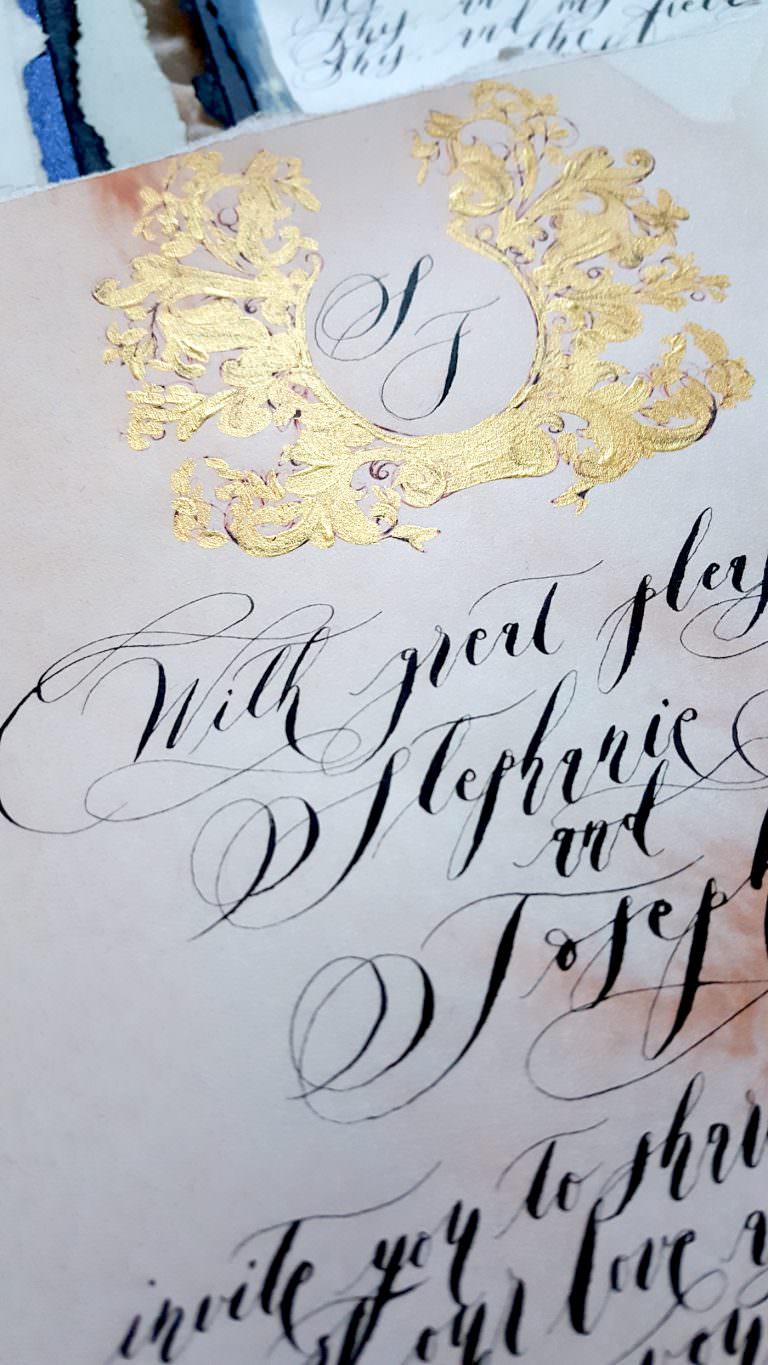 S J
With great pleas
Stephanie
and
Joseph
invite you to shar
our love